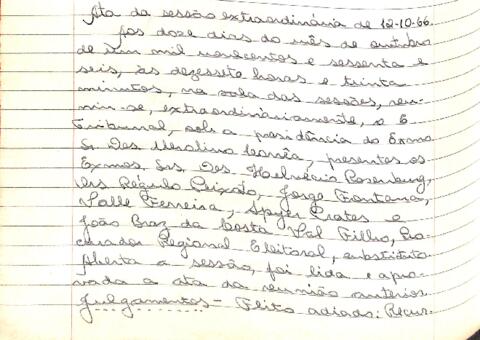 Ata da sessão extraordinária de 12-10-66.
Aos doze dias do mês de outubro
de um mil novecentos e sessenta e
seis, às dezessete horas e trinta
minutos, na sala das sessões, reu-
niu-se, extraordinàriamente, o E.
Tribunal, sob a presidência do Exmo
Sr. Des. Merolino Corrêa, presentes os
Exmos. Srs. Des. Helvécio Rosenburg,
Drs Régulo Peixoto, Jorge Fontana,
Valle Ferreira, Ayer Prates e
João Braz da Costa Val Filho, Pro-
curador Regional Eleitoral, substituto
Aberta a sessão, foi lida e apro-
vada a ata da reunião anterior
Julgamentos - Feito adiado: Recur-